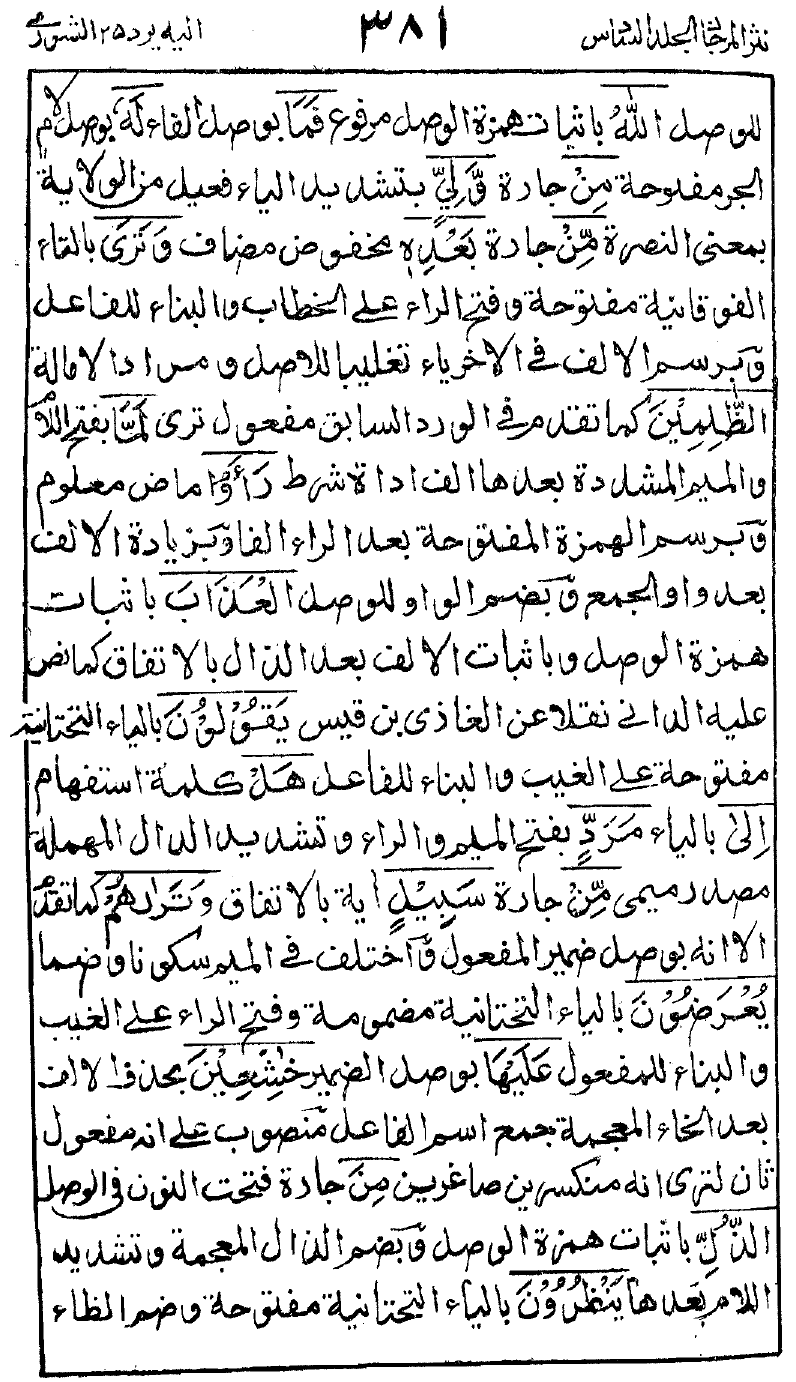 نثر المرجان المجلد السادس ٣٨١ اليه يرد ٢٥ الشورى
للوصل اللهُ باثبات همزة الوصل مرفوع فَمَا بوصل الفاء لَهٗ بوصل لام
الجر مفتوحة مِنْ جارة وَّلِيٍّ بتشديد الياء فعيل من الولاية
بمعنى النصرة مِّنْ جارة بَعْدِهٖ مخفوض مضاف وَتَرَى بالتاء
الفوقانية مفتوحة وفتح الراء على الخطاب والبناء للفاعل
وبرسم الالف في الاخر ياء تغليبا للاصل ومراد الامالة
الظّٰلِمِيْنَ كما تقدم في الورد السابق مفعول ترى لَمَّا بفتح اللام
والميم المشددة بعدها الف اداة شرط رَأَوُا ماض معلوم
وبرسم الهمزة المفتوحة بعد الراء الفا وبزيادة الالف
بعد واو الجمع وبضم الواو للوصل الْعَذَابَ باثبات
همزة الوصل وباثبات الالف بعد الذال بالاتفاق كما نص
عليه الداني نقلا عن الغازى بن قيس يَقُوْلُوْنَ بالياء التحتانية
مفتوحة على الغيب والبناء للفاعل هَلْ كلمة استفهام
اِلىٰ بالياء مَرَدٍّ بفتح الميم والراء وتشديد الدال المهملة
مصدر ميمى مِّنْ جارة سَبِيْلٍ اية بالاتفاق وَتَرٰىهُمْ كما تقدم
الا انه بوصل ضمير المفعول واختلف في الميم سكونا وضما
يُعْرَضُوْنَ بالياء التحتانية مضمومة وفتح الراء على الغيب
والبناء للمفعول عَلَيْهَا بوصل الضمير خٰشِعِيْنَ بحذف الالف
بعد الخاء المعجمة جمع اسم الفاعل منصوب على انه مفعول
ثان لترى انه منكسرين صاغرين مِنَ جارة فتحت النون في الوصل
الذُّلِّ باثبات همزة الوصل وبضم الذال المعجمة وتشديد
اللام بعدها يَنْظُرُوْنَ بالياء التحتانية مفتوحة وضم الظاء